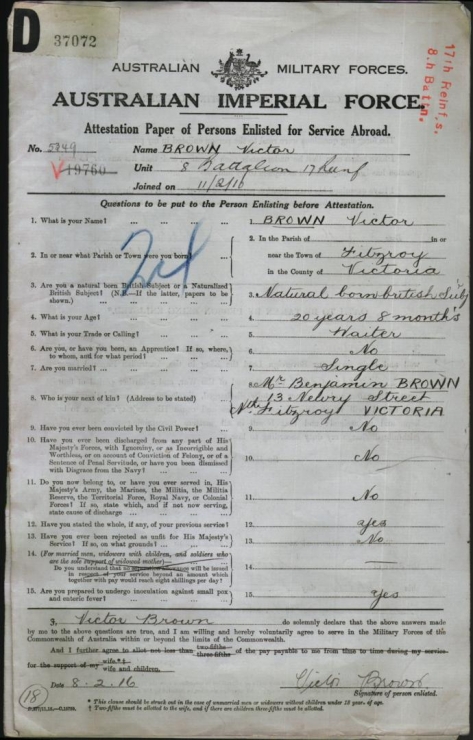 D
37072
17th Reinf.s.
8.h Battn.
AUSTRALIAN MILITARY FORCES.
AUSTRALIAN IMPERIAL FORCE.
Attestation Paper of Persons Enlisted for Service Abroad.
No. Name BROWN Victor
V 19760 Unit 8 Battalion 17 Reinf
Joined on 11/2/16
Questions to be put to the Person Enlisting before Attestation.
1. What is your Name? ... 1. BROWN Victor
2. In or near what Parish or Town were you born? 2. In the Parish of in or
near the Town of Fitzroy
in the County of Victoria
24
3. Are you a natural born British Subject or a Naturalized
British Subject? (N.B.—If the latter, papers to be
shown.) 3. Natural born british Subj
4. What is your Age? 4. 20 years 8 months
5. What is your Trade or Calling? 5. Waiter
6. Are you, or have you been, an Apprentice? If so, where,
to whom, and for what period? 6. No
7. Are you married? 7. Single
8. Who is your next of kin? (Address to be stated) 8. Mr Benjamin BROWN
13 Newry Street
Nth Fitzroy VICTORIA
9. Have you ever been convicted by the Civil Power? 9. No
10. Have you ever been discharged from any part of His
Majesty's Forces, with Ignominy, or as Incorrigible and
Worthless, or on account of Conviction of Felony, or of a
Sentence of Penal Servitude, or have you been dismissed
with Disgrace from the Navy? 10. No
11. Do you now belong to, or have you ever served in, His
Majesty's Army, the Marines, the Militia, the Militia
Reserve, the Territorial Force, Royal Navy, or Colonial
Forces? If so, state which, and if not now serving,
state cause of discharge 11. No
12. Have you stated the whole, if any, of your previous service? 12. yes
13. Have you ever been rejected as unfit for His Majesty's
Service? If so, on what grounds? 13. No
14. (For married men, widowers with children, and soldiers who
are the sole support of widowed mother)—
Do you understand that no separation allowance will be issued
in respect of your service beyond an amount which
together with pay would reach eight shillings per day? 14.
15. Are you prepared to undergo inoculation against small pox
and enteric fever? 15. yes
I, Victor Brown do solemnly declare that the above answers made
by me to the above questions are true, and I am willing and hereby voluntarily agree to serve in the Military Forces of the
Commonwealth of Australia within or beyond the limits of the Commonwealth.
And I further agree to allot not less than two-fifths three-fifths of the pay payable to me from time to time during my service
for the support of my wife*†
wife and children.
Date 8.2.16 Victor Brown
Signature of person enlisted.
18
* This clause should be struck out in the case of unmarried men or widowers without children under 18 years of age.
† Two-fifths must be allotted to the wife, and if there are children three-fifths must be allotted.